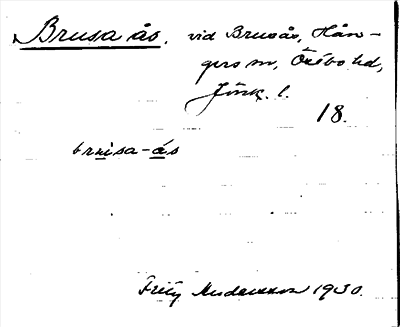 Brusa ås, vid Brusås, Hån-
gers sn, Östbo hd,
Jönk. l.
18.
brusa-ås
Fritz 1930.